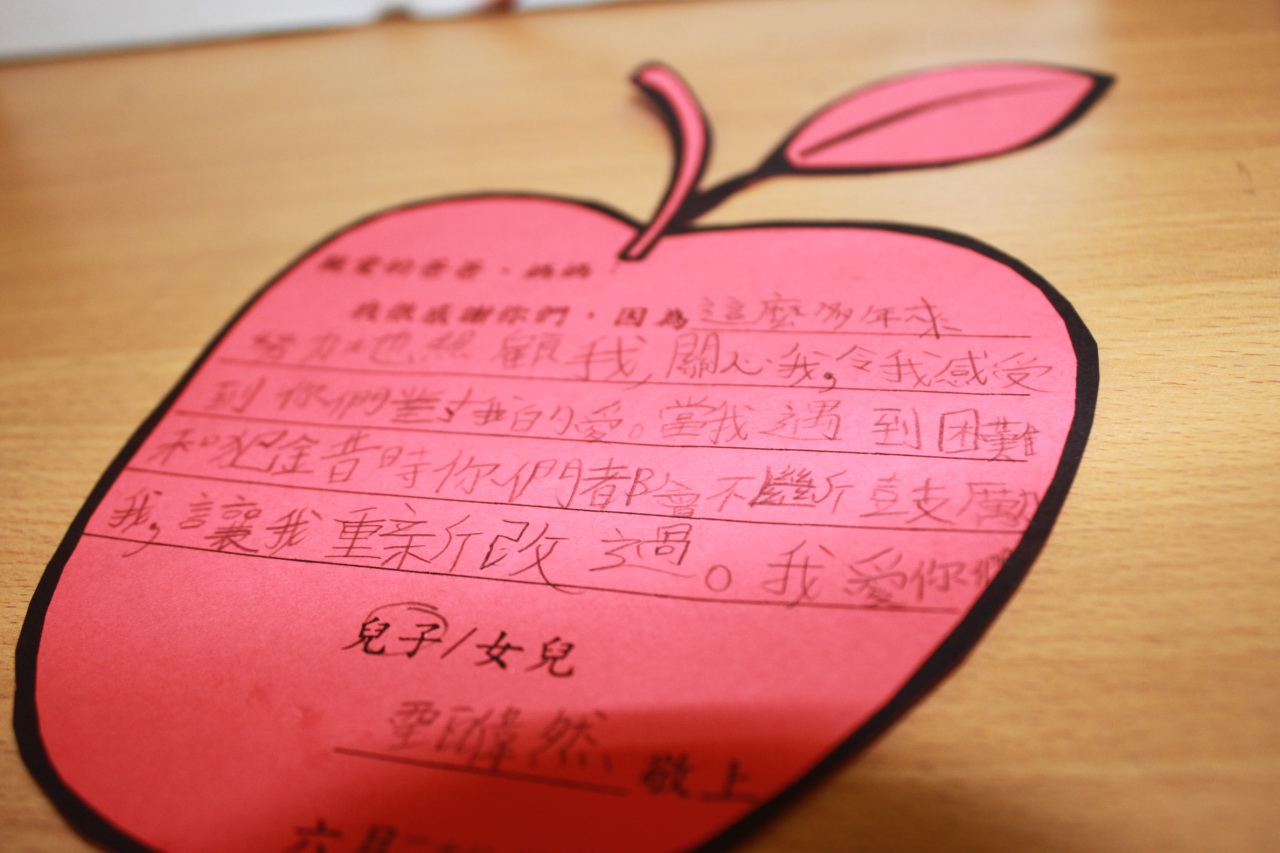 親愛的爸爸、媽媽：
我很感謝你們，因為這麼多年來
努力地照顧我,關心我,令我感受
到你們對我的愛。當我遇到困難
和犯錯時你們都會不斷鼓勵
我,讓我重新改過。我愛你們
兒子/女兒
然
敬上
六月